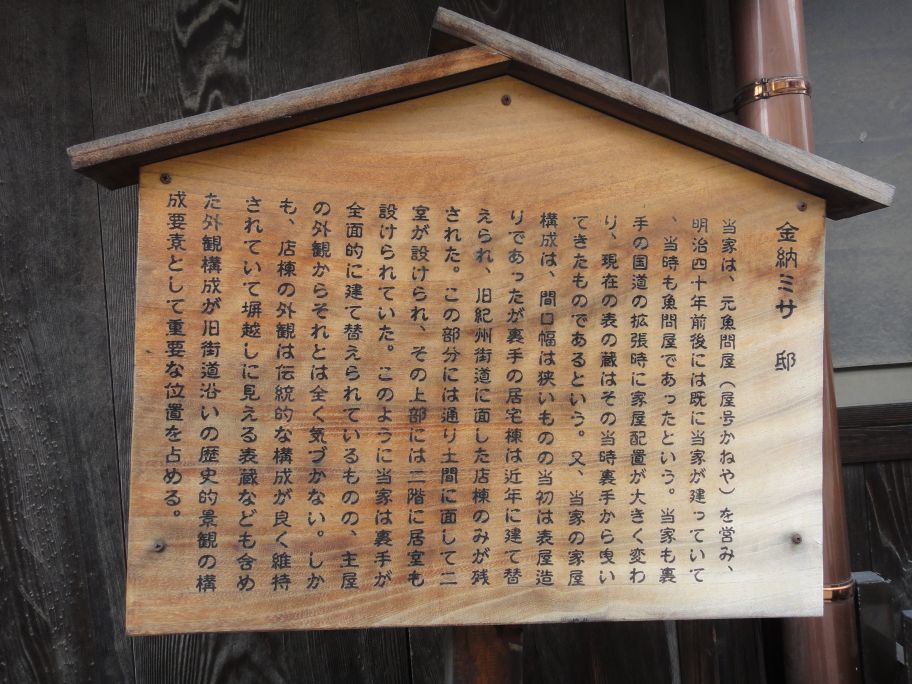 金納ミサ 邸
当家は、元魚問屋(屋号かねや)を営み、
明治四十年前後には既に当家が建っていて
、当時も魚問屋であったという。当家も裏
手の国道の拡張時に家屋配置が大きく変わ
り、現在の表の蔵はその当時裏手から曳い
てきたものであるという。又、当家の家屋
構成は、間口幅は狭いものの当初は表屋造
りであったが裏手の居宅棟は近年に建て替
えられ、旧紀州街道に面した店棟のみが残
された。この部分には通り土間に面して二
室が設けられ、その上部には二階に居室も
設けられていた。このように当家は裏手が
全面的に建て替えられているものの、主屋
の外観からそれとは全く気づかない。しか
も、店棟の外観は伝統的な構成が良く維持
されていて塀越しに見える表蔵なども含め
た外観構成が旧街道沿いの歴史的景観の構
成要素として重要な位置を占める。